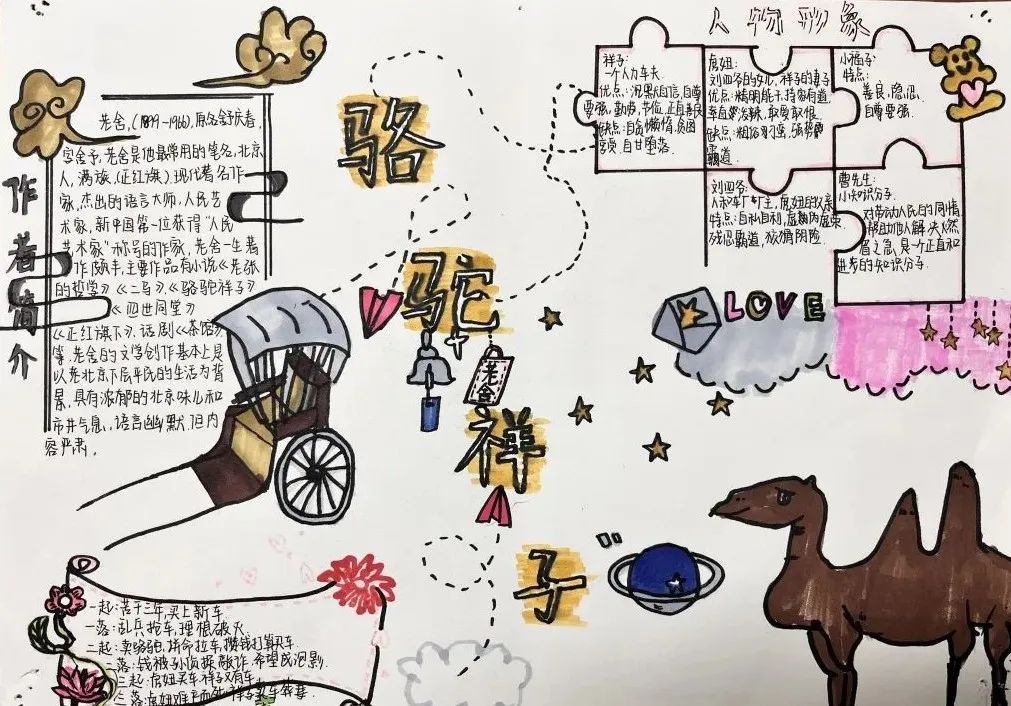 骆
驼
祥
子
老舍
作者简介
老舍,(1899-1966),原名舒庆春,
字舍予,老舍是他最常用的笔名,北京
人,满族,(正红旗)现代著名作
家,杰出的语言大师,人民艺
术家,新中国第一位获得"人民
艺术家"称号的作家,老舍一生著
作颇丰,主要作品有小说《老张
的哲学》《二马》《骆驼祥子》
《四世同堂》
《正红旗下》.话剧《茶馆》
等.老舍的文学创作基本上是
以老北京下层平民的生活为背
景,具有浓郁的北京味儿和
市井气息,语言幽默.但内
容严肃.
人物形象
祥子:
一个人力车夫.
优点:沉默自信,自尊
要强,勤劳,节俭,正直善良
缺点:自私懒惰,贪图
享受.自甘堕落.
虎妞:
刘四爷的女儿,祥子的妻子
优点:精明能干,持家有道,
率直泼辣,敢爱敢恨.
缺点:粗俗刁蛮,
霸道.
小福子:
特点:
善良,隐忍,
自尊要强.
刘四爷:
人和车厂厂主,虎妞的父亲
特点:自私自利,
残忍霸道,狡猾阴险.
曹先生:
小知识分子.
对劳动人民的同情
帮助他人解决燃
眉之急,是一个正直和
进步的知识分子.
LOVE
一起:苦干三年,买上新车.
一落:乱兵抢车,理想破灭.
二起:卖骆驼,拼命拉车,攒钱打算买车.
二落:钱被孙侦探敲诈,希望成泡影.
三起:虎妞买车,祥子又有车.
三落:虎妞难产而死,祥子卖车葬妻.